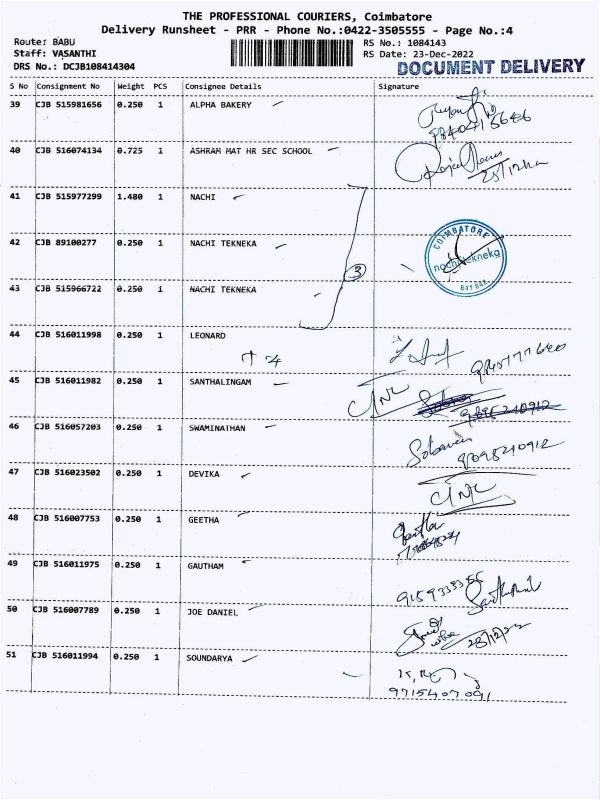 THE PROFESSIONAL COURIERS, Coimbatore
Delivery Runsheet - PRR - Phone No.:0422-3505555 - Page No.:4
Route: BABU RS No.: 1084143
Staff: VASANTHI RS Date: 23-Dec-2022
DRS No.: DCJB108414304 DOCUMENT DELIVERY
S No Consignment No Weight PCS Consignee Details Signature
39 CJB 515981656 0.250 1 ALPHA BAKERY
40 CJB 516074134 0.725 1 ASHRAM MAT HR SEC SCHOOL
41 CJB 515977299 1.480 1 NACHI
42 CJB 89100277 0.250 1 NACHI TEKNEKA
3
COIMBATORE
nachi tekneka
641 042
43 CJB 515966722 0.250 1 NACHI TEKNEKA
44 CJB 516011998 0.250 1 LEONARD
45 CJB 516011982 0.250 1 SANTHALINGAM
9895240912
46 CJB 516057203 0.250 1 SWAMINATHAN
9895240912
47 CJB 516023502 0.250 1 DEVIKA
48 CJB 516007753 0.250 1 GEETHA
Geetha
49 CJB 516011975 0.250 1 GAUTHAM
50 CJB 516007789 0.250 1 JOE DANIEL
23/12/22
51 CJB 516011994 0.250 1 SOUNDARYA
9715407091